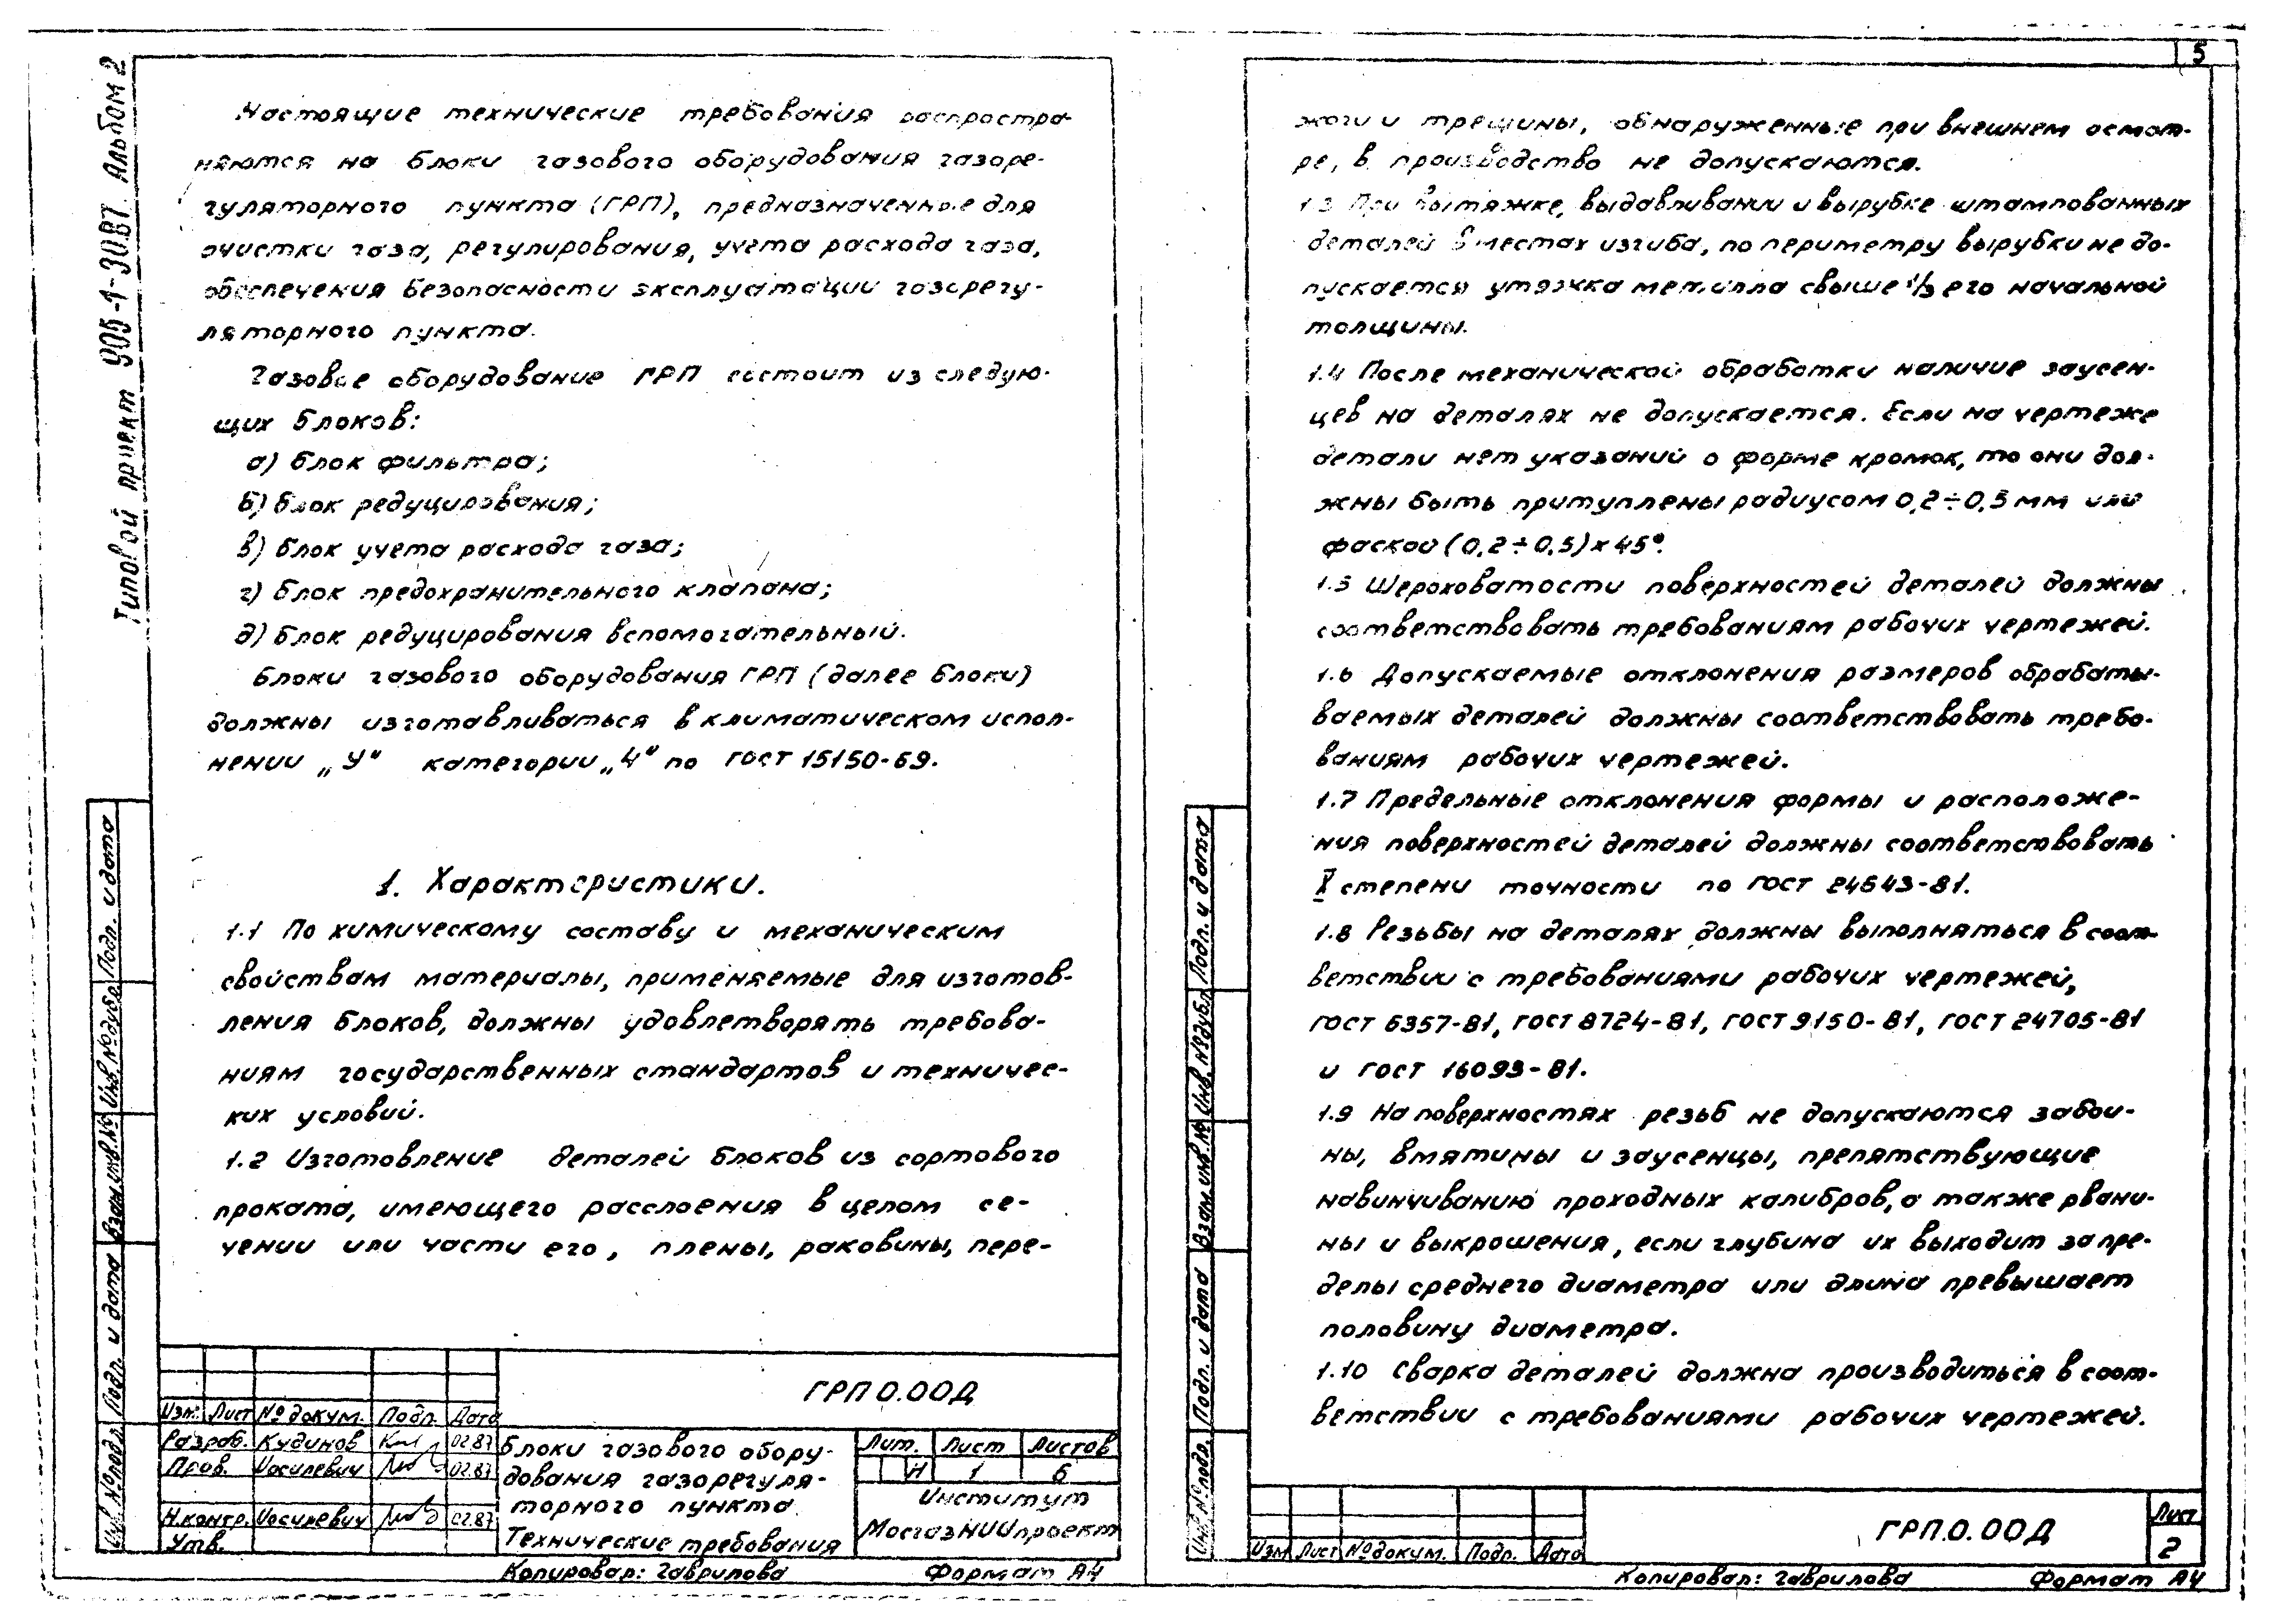 Типовой проект 905-1-30ВТ. Альбом 2
Настоящие технические требования распростра-
няются на блоки газового оборудования газоре-
гуляторного пункта (ГРП), предназначенные для
очистки газа, регулирования, учета расхода газа,
обеспечения безопасности эксплуатации газорегу-
ляторного пункта.
Газовое оборудование ГРП состоит из следую-
щих блоков:
а) блок фильтра;
б) блок редуцирования;
в) блок учета расхода газа;
г) блок предохранительного клапана;
д) блок редуцирования вспомогательный.
Блоки газового оборудования ГРП (далее блоки)
должны изготавливаться в климатическом испол-
нении „У" категории „4" по ГОСТ 15150-69.
1. Характеристики.
1.1 По химическому составу и механическим
свойствам материалы, применяемые для изготов-
ления блоков, должны удовлетворять требова-
ниям государственных стандартов и техничес-
ких условий.
1.2 Изготовление деталей блоков из сортового
проката, имеющего расслоения в целом се-
чении или части его, плены, раковины, пере-
ГРП 0.00Д
Изм. Лист № докум. Подп. Дата
Разраб. Кудинов 02.87
Пров. Иосилевич 02.87
Н.контр. Иосилевич 02.87
Утв.
Блоки газового обору-
дования газорегуля-
торного пункта.
Технические требования
Лит. Лист Листов
И 1 6
Институт
МосгазНИИпроект
Копировал: Гаврилова Формат А4
Инв. № подл. Подп. и дата Взам. инв. № Инв. № дубл. Подп. и дата
5
жоги и трещины, обнаруженные при внешнем осмот-
ре, в производство не допускаются.
1.3 При вытяжке, выдавливании и вырубке штампованных
деталей в местах изгиба, по периметру вырубки не до-
пускается утяжка металла свыше 1/3 его начальной
толщины.
1.4 После механической обработки наличие заусен-
цев на деталях не допускается. Если на чертеже
детали нет указаний о форме кромок, то они дол-
жны быть притуплены радиусом 0,2÷0,5 мм или
фаской (0,2÷0,5)х45°.
1.5 Шероховатости поверхностей деталей должны
соответствовать требованиям рабочих чертежей.
1.6 Допускаемые отклонения размеров обрабаты-
ваемых деталей должны соответствовать требо-
ваниям рабочих чертежей.
1.7 Предельные отклонения формы и расположе-
ния поверхностей деталей должны соответствовать
X степени точности по ГОСТ 24643-81.
1.8 Резьбы на деталях должны выполняться в соот-
ветствии с требованиями рабочих чертежей,
ГОСТ 6357-81, ГОСТ 8724-81, ГОСТ 9150-81, ГОСТ 24705-81
и ГОСТ 16093-81.
1.9 На поверхностях резьб не допускаются забои-
ны, вмятины и заусенцы, препятствующие
навинчиванию проходных калибров, а также рвани-
ны и выкрошения, если глубина их выходит за пре-
делы среднего диаметра или длина превышает
половину диаметра.
1.10 Сварка деталей должна производиться в соот-
ветствии с требованиями рабочих чертежей.
Изм Лист № докум. Подп. Дата
ГРП.0.00Д
Лист
2
Копировал: Гаврилова Формат А4
Инв. № подл. Подп. и дата Взам. инв. № Инв. № дубл. Подп. и дата